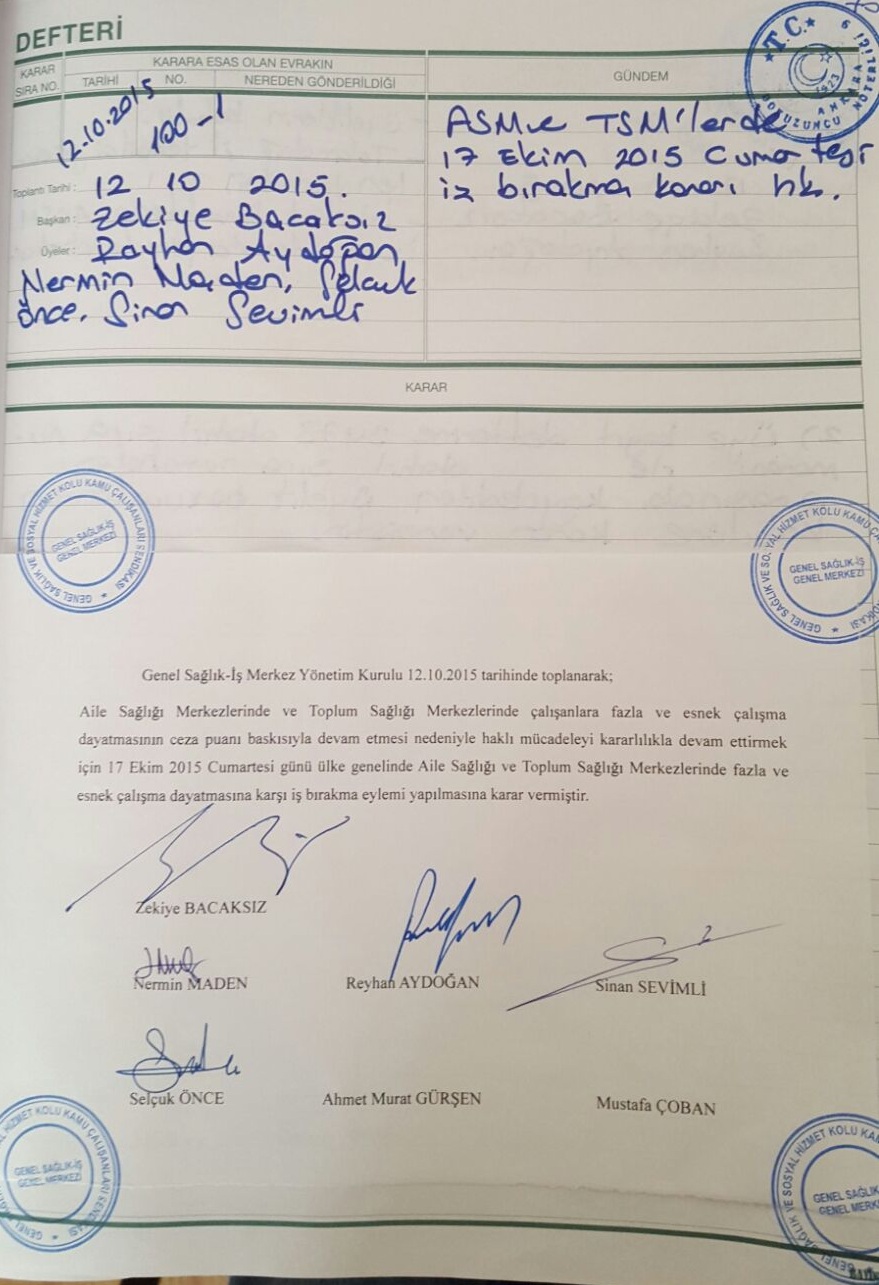 DEFTERİ
KARAR SIRA NO.
KARARA ESAS OLAN EVRAKIN
TARİHİ NO. NEREDEN GÖNDERİLDİĞİ
GÜNDEM
12.10.2015 100-1
ASM ve TSM'lerde
17 Ekim 2015 Cumartesi
iz bırakma kararı hk.
Toplantı Tarihi: 12 10 2015.
Başkan: Zekiye Bacaksız
Üyeler: Reyhan Aydoğan,
Nermin Maden, Selçuk
Önce, Sinan Sevimli
KARAR
T.C.
1923
ANKARA
DOKUZUNCU NOTERLİĞİ
GENEL SAĞLIK VE SOSYAL HİZMET KOLU KAMU ÇALIŞANLARI SENDİKASI
GENEL SAĞLIK-İŞ
GENEL MERKEZİ
GENEL SAĞLIK VE SOSYAL HİZMET KOLU KAMU
GENEL SAĞLIK-İŞ
GENEL MERKEZİ
Genel Sağlık-İş Merkez Yönetim Kurulu 12.10.2015 tarihinde toplanarak;
Aile Sağlığı Merkezlerinde ve Toplum Sağlığı Merkezlerinde çalışanlara fazla ve esnek çalışma
dayatmasının ceza puanı baskısıyla devam etmesi nedeniyle haklı mücadeleyi kararlılıkla devam ettirmek
için 17 Ekim 2015 Cumartesi günü ülke genelinde Aile Sağlığı ve Toplum Sağlığı Merkezlerinde fazla ve
esnek çalışma dayatmasına karşı iş bırakma eylemi yapılmasına karar vermiştir.
Zekiye BACAKSIZ
Nermin MADEN Reyhan AYDOĞAN Sinan SEVİMLİ
Selçuk ÖNCE Ahmet Murat GÜRŞEN Mustafa ÇOBAN
HİZMET KOLU KAMU ÇALIŞANLARI SENDİKASI
GENEL SAĞLIK-İŞ
GENEL MERKEZİ
GENEL SAĞLIK VE SOSYAL HİZMET KOLU
GENEL SAĞLIK
GENEL